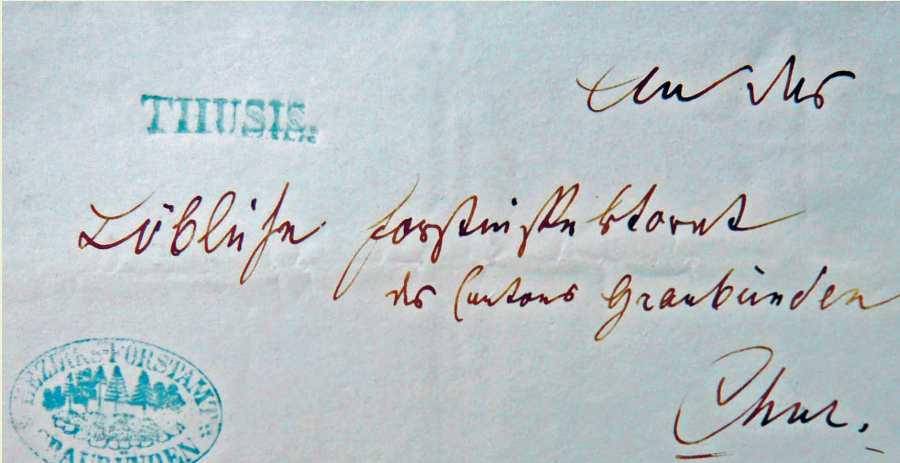 THUSIS.
An das
Löbliche Forstinspektorat
des Cantons Graubünden
Chur.
BEZIRKS-FORSTAMT
GRAUBÜNDEN